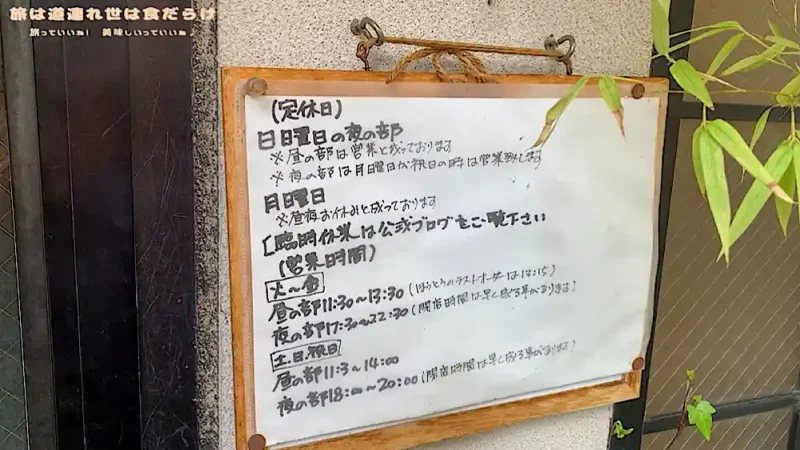 旅は道連れ世は食だらけ
旅っていいね! 美味しいっていいね♪
(定休日)
日曜日の夜の部
※昼の部は営業と成っております
※夜の部は月曜日が祝日の時は営業致します
月曜日
※昼夜お休みと成っております
[臨時休業は公式ブログをご覧下さい
(営業時間)
火〜金
昼の部11:30〜13:30(ほうとうのラストオーダーは13:15)
夜の部17:30〜22:30(閉店時間は早く成る事があります)
土.日.祝日
昼の部11:3〜14:00
夜の部18:00〜20:00(閉店時間は早く成る事があります)